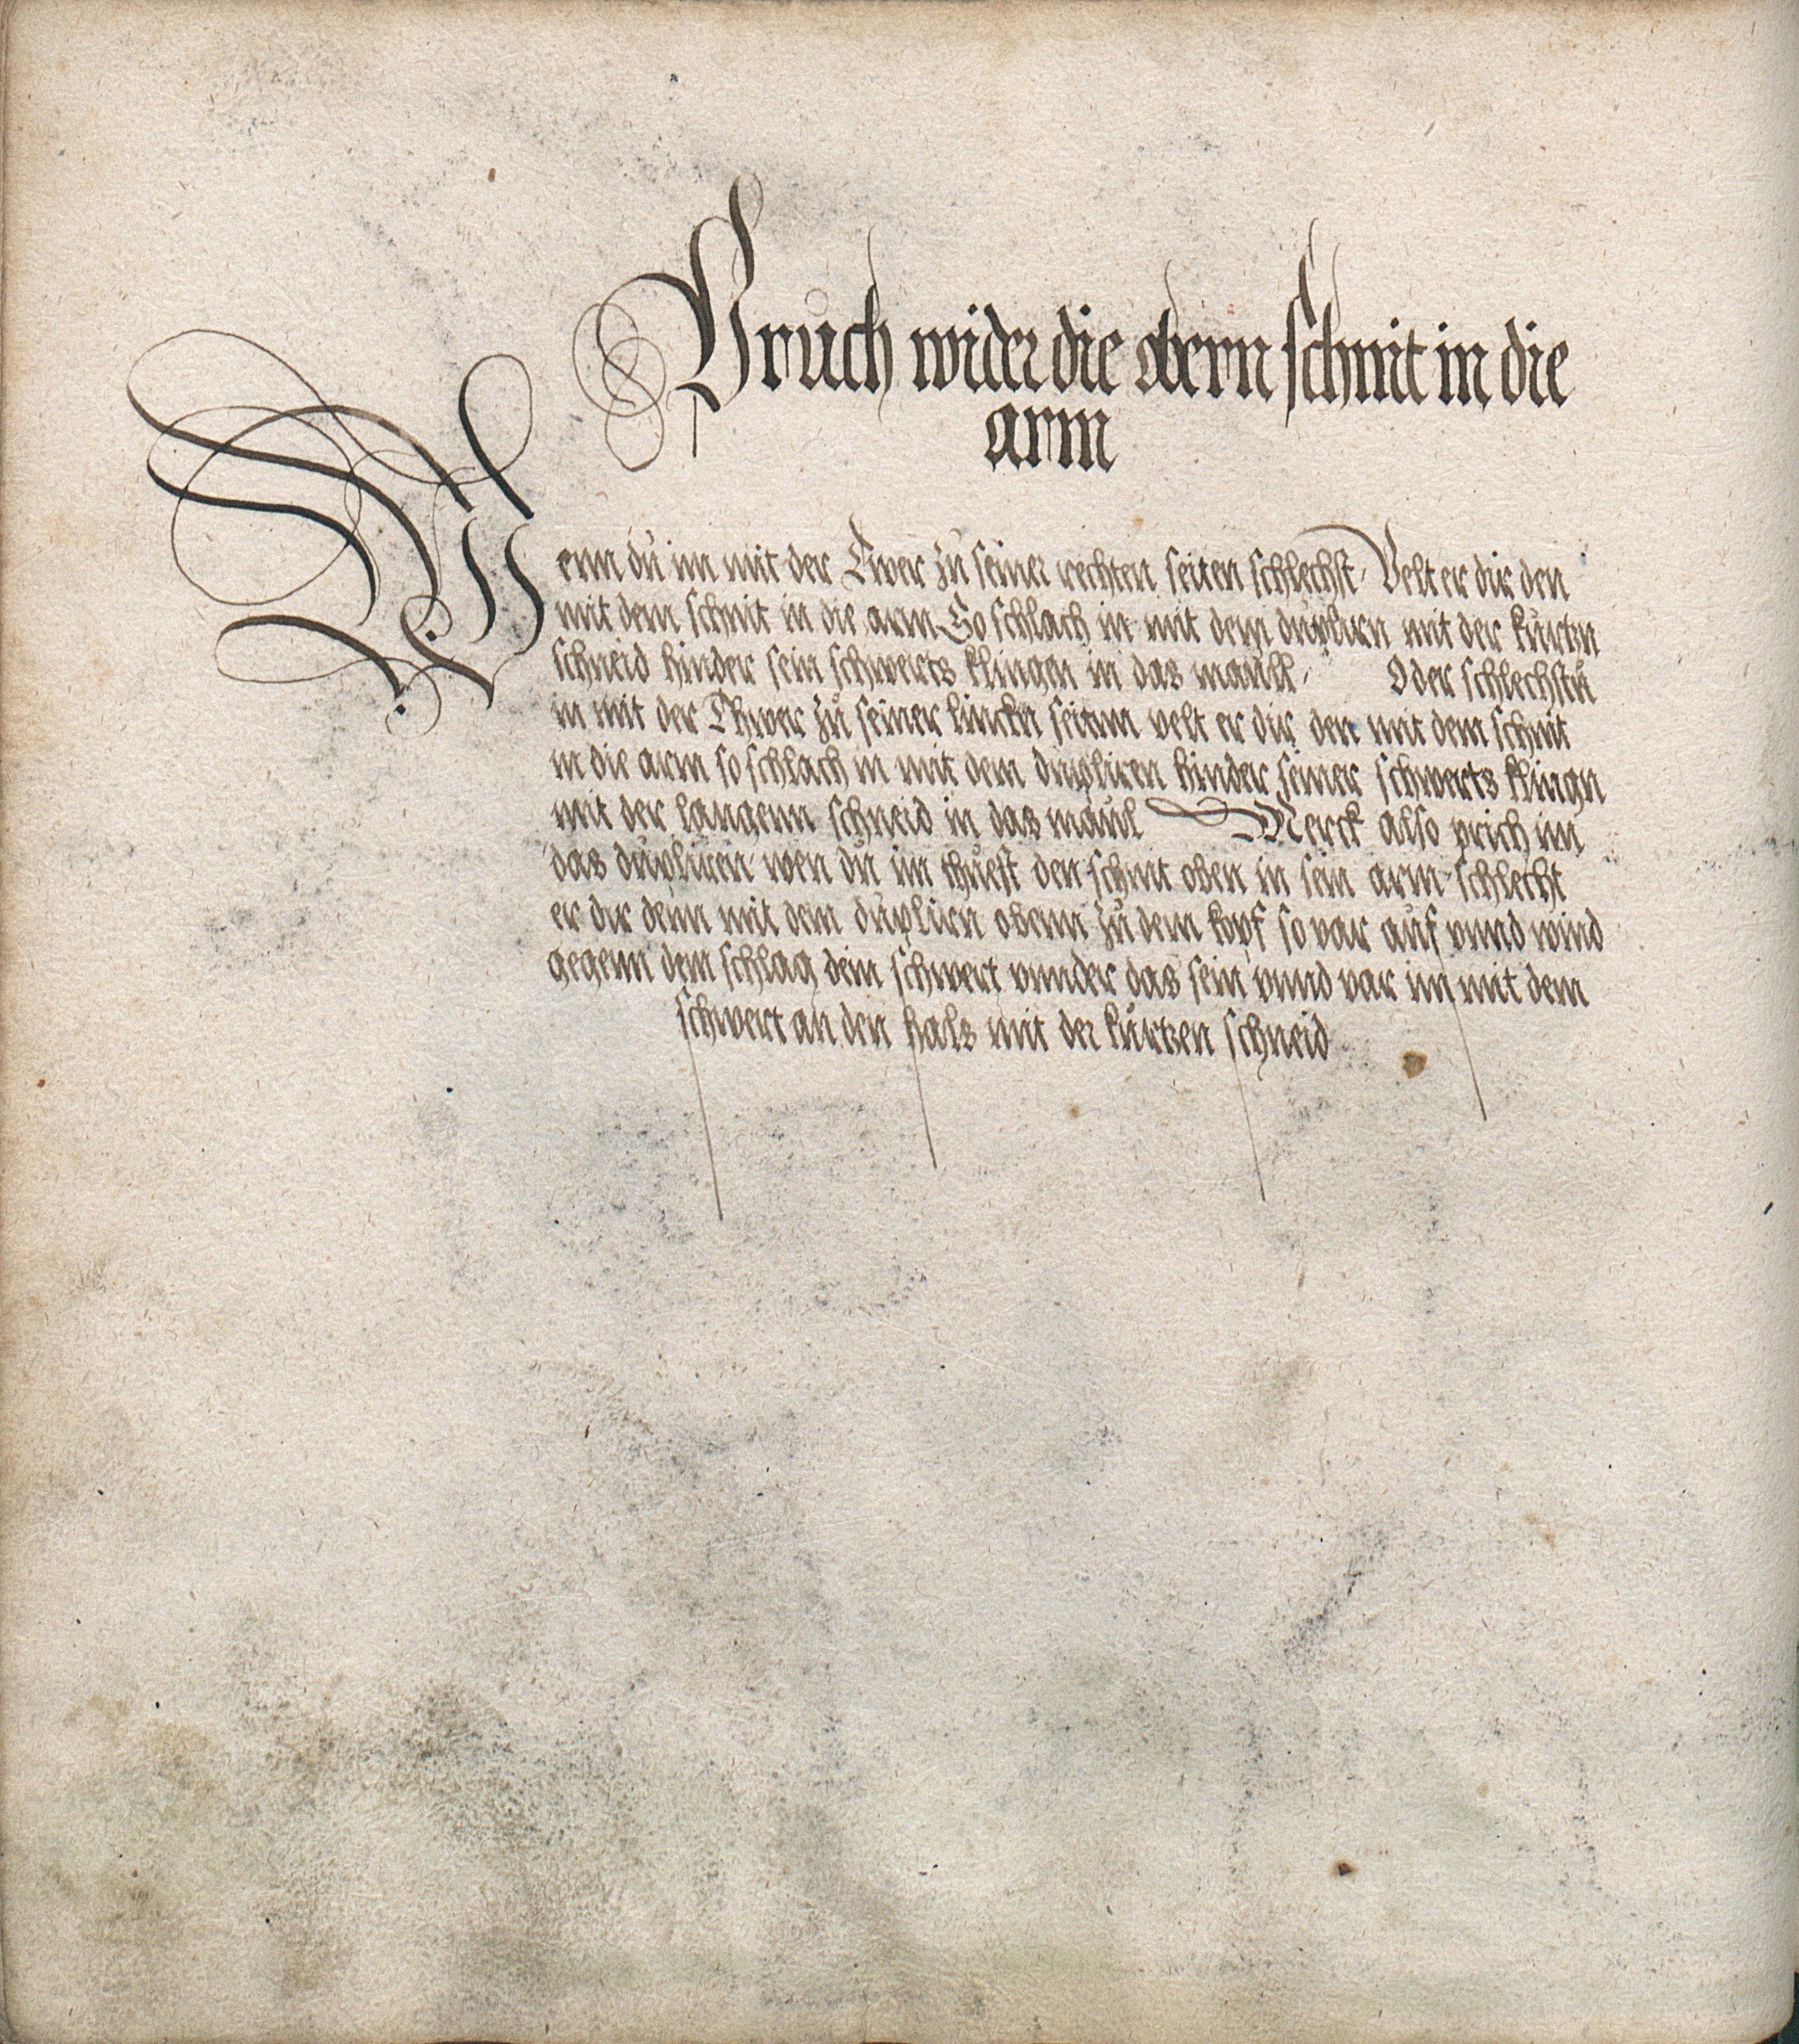 Bruch wider die obern schnit in die
arm
Wenn du im mit der Twer zu seiner rechten seiten schlechst Velt er dir den
mit dem schnit in die arm So schlach in mit dem duplirn mit der kurtzn
schneid hinder sein schwerts klingen in das maull Oder schlechstu
in mit der Thwer zu seiner linckn seitnn velt er dir den mit dem schnit
in die arm so schlach in mit dem dupliren hinder seiner schwerts klingn
mit der langenn schneid in das maul Merck also prich im
das dupliren wen du im thuest den schnit oben in sein arm schlecht
er dir denn mit dem duplirn obenn zu dem kopf so var auf vnnd wind
gegenn dem schlag dein schwert vnnder das sein vnnd var im mit dem
schwert an den hals mit der kurtzen schneid